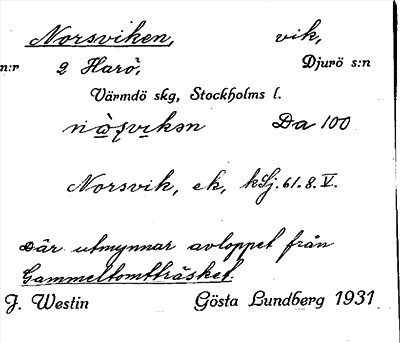 Norsviken, vik,
n:r 2 Harö, Djurö s:n
Värmdö skg, Stockholms l.
Da 100
Norsvik, ek, kSj. 61. 8. V.
Där utmynnar avloppet från
Gammeltomtträsket.
J. Westin Gösta Lundberg 1931